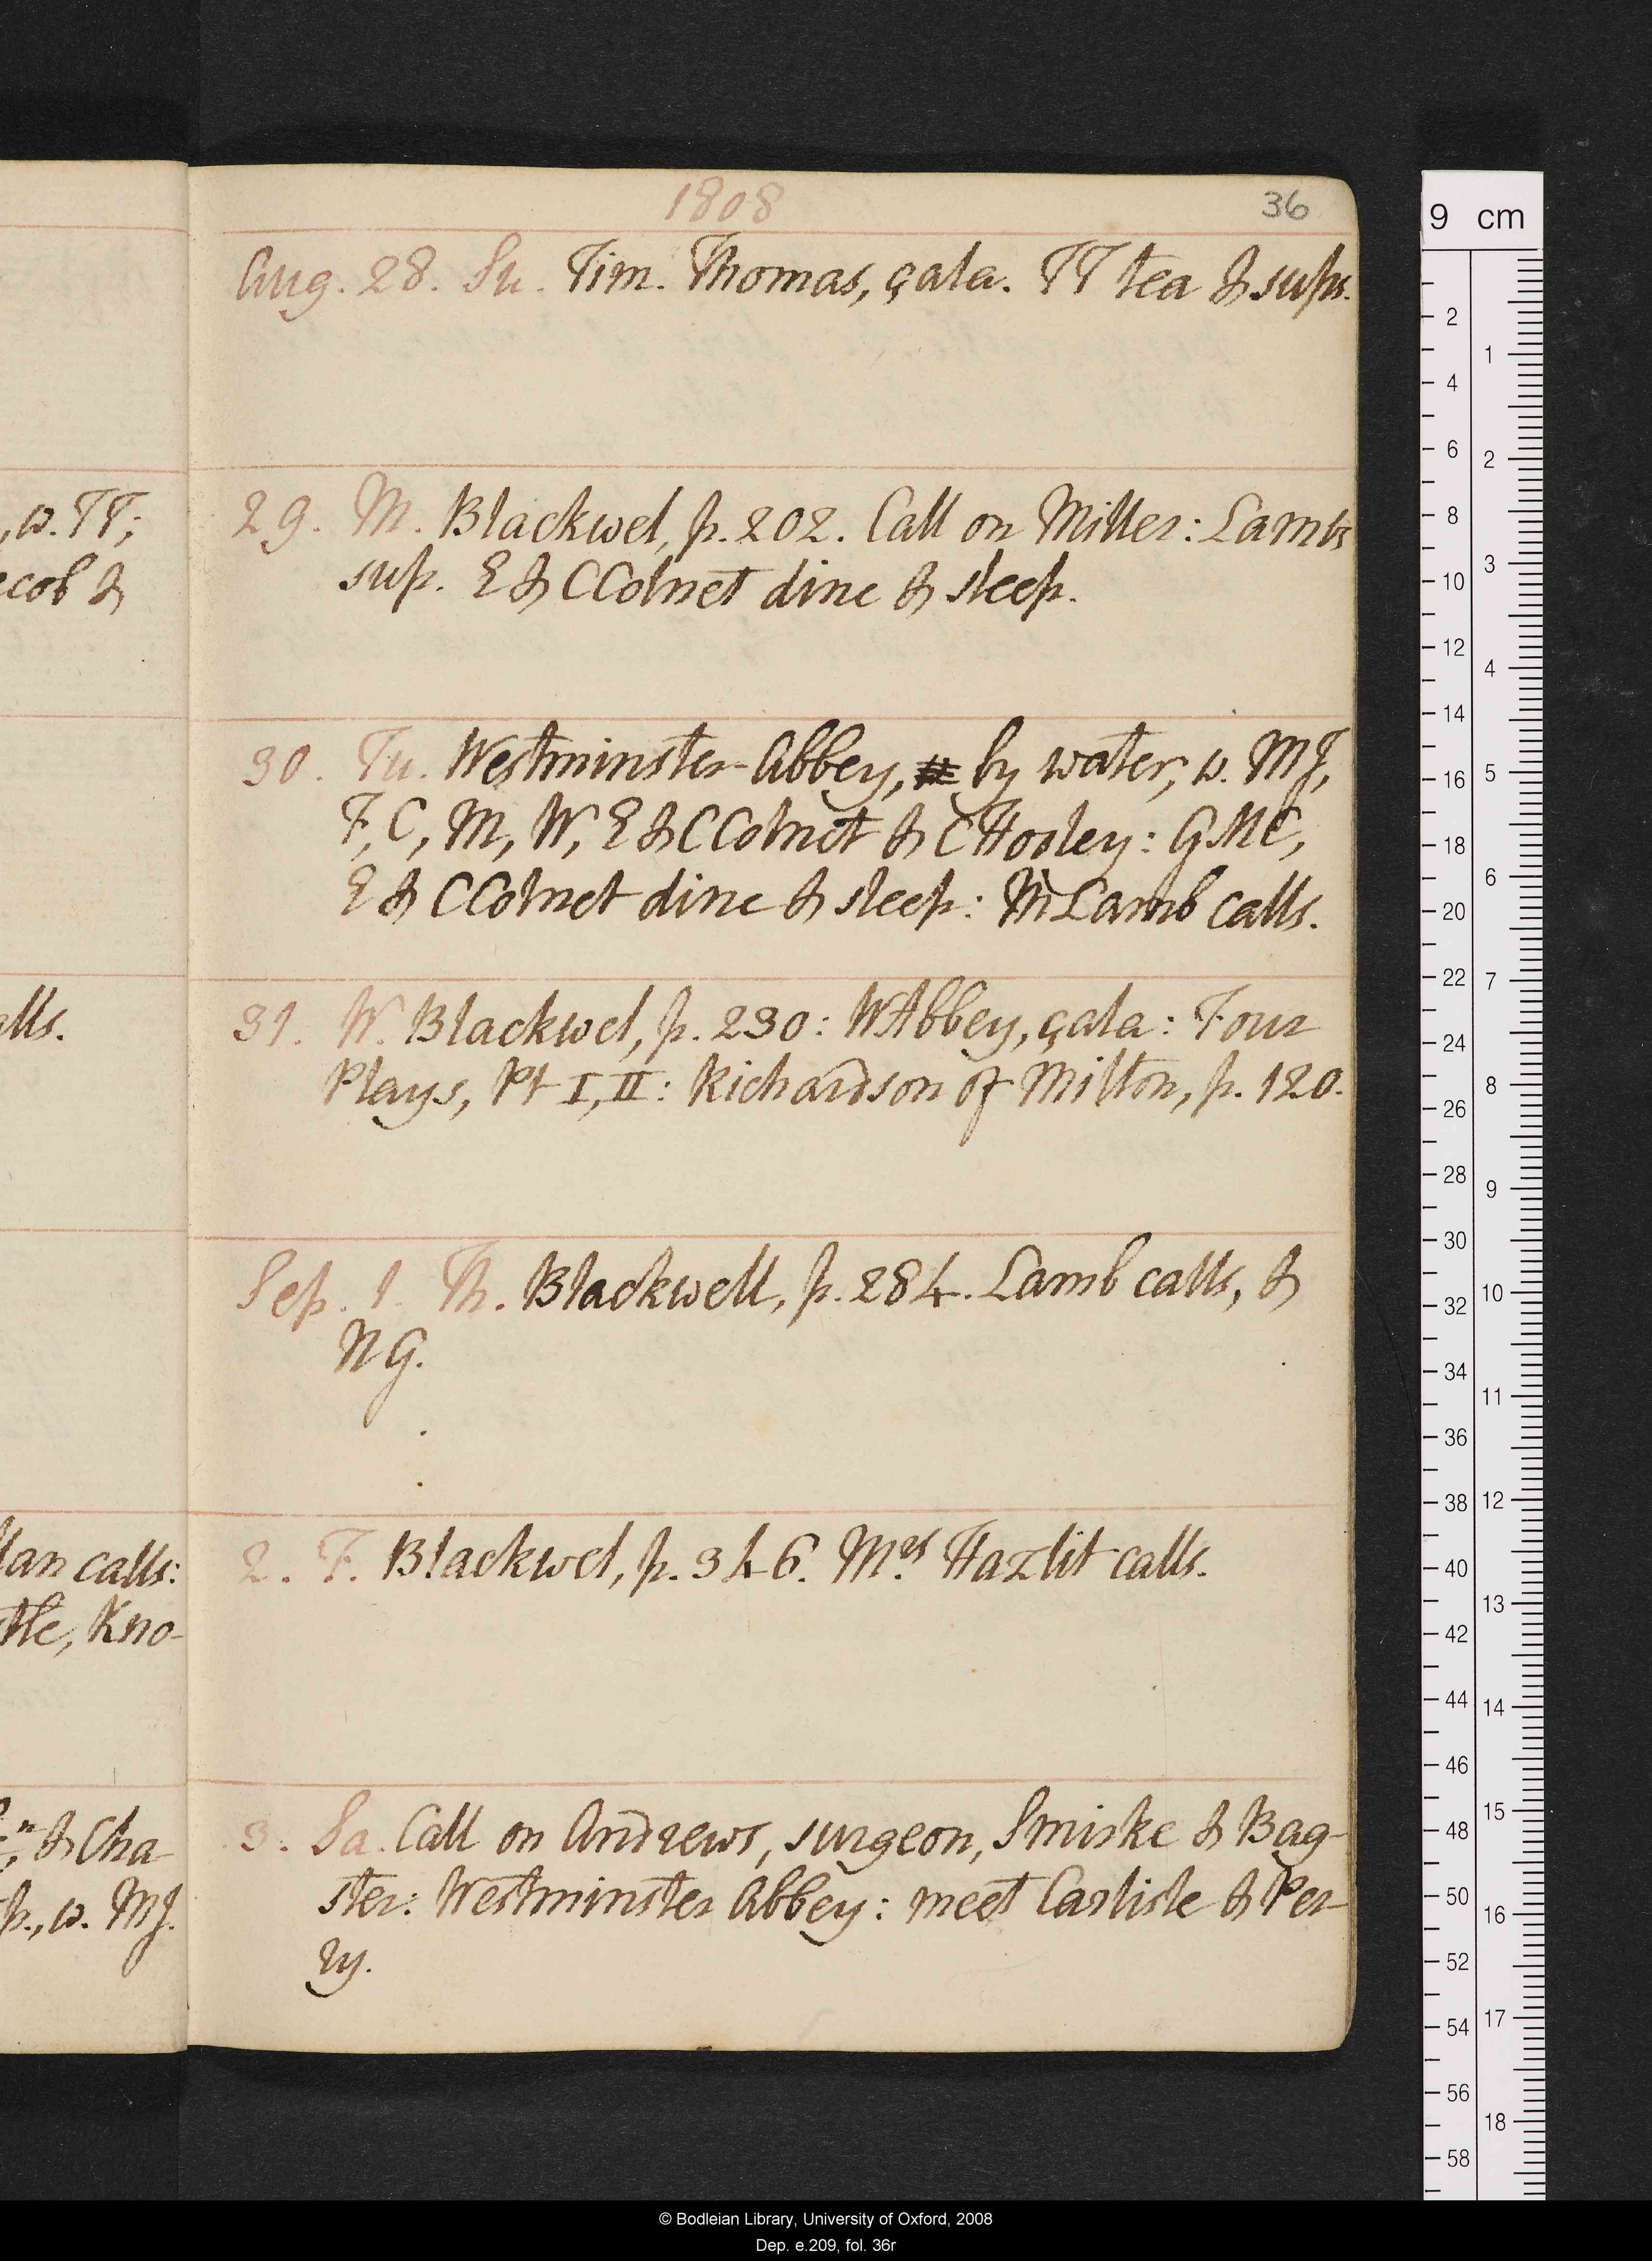 1808
36
Aug. 28. Su. Tim. Thomas, çala. TT tea & sups.
29. M. Blackwel, p. 202. Call on Miller: Lambs
sup. E & CColnet dine & sleep.
30. Tu. Westminster-Abbey, by water, w. MJ,
F, C, M, W, E & CColnet & CHooley: GMC,
E & CColnet dine & sleep: M Lamb calls.
31. W. Blackwel, p. 230: WAbbey, çala: Four
Plays, Pt I, II: Richardson of Milton, p. 120.
Sep. 1. Th. Blackwell, p. 284. Lamb calls, &
NG.
2. F. Blackwel, p. 346. Mrs Hazlit calls.
3. Sa. Call on Andrews, surgeon, Smirke & Bag-
ster: Westminster Abbey: meet Carlisle & Per-
ry.
, w. TT;
cob &
alls.
lan calls:
tle, Kno-
& Cha-
p., w. MJ.
9 cm
2
4
6
8
10
12
14
16
18
20
22
24
26
28
30
32
34
36
38
40
42
44
46
48
50
52
54
56
58
1
2
3
4
5
6
7
8
9
10
11
12
13
14
15
16
17
18
© Bodleian Library, University of Oxford, 2008
Dep. e.209, fol. 36r